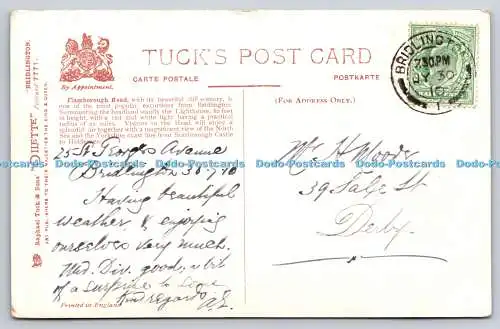 TUCK'S POST CARD
CARTE POSTALE
POSTKARTE
By Appointment.
(FOR ADDRESS ONLY.)
Flamborough Head, with its beautiful cliff scenery, is
one of the most popular excursions from Bridlington.
Surmounting the headland stands the Lighthouse,
in height, with a red and white light having a practical
radius of miles. Visitors to the Head will enjoy a
splendid air together with a magnificent view of the North
Sea and the Yorkshire coast line from Scarborough Castle
to Holderness.
"BRIDLINGTON."
Postcard 7771.
Raphael Tuck & Sons' "OILETTE"
ART PUBLISHERS TO THEIR MAJESTIES THE KING & QUEEN.
BRIDLINGTON
7 30 PM
30
10
1
25 St Georges Avenue
Bridlington 30-7-10
Having beautiful
weather & enjoying
ourselves very much.
Mid. Div. goods, a bit
of a surprise to
Kind regards
Mr H Woods
39 Sale St
Derby
Printed in England.
DbcPostcards DbcPostcards DbcPostcards DbcPostcards DbcPostcards DbcPostcards